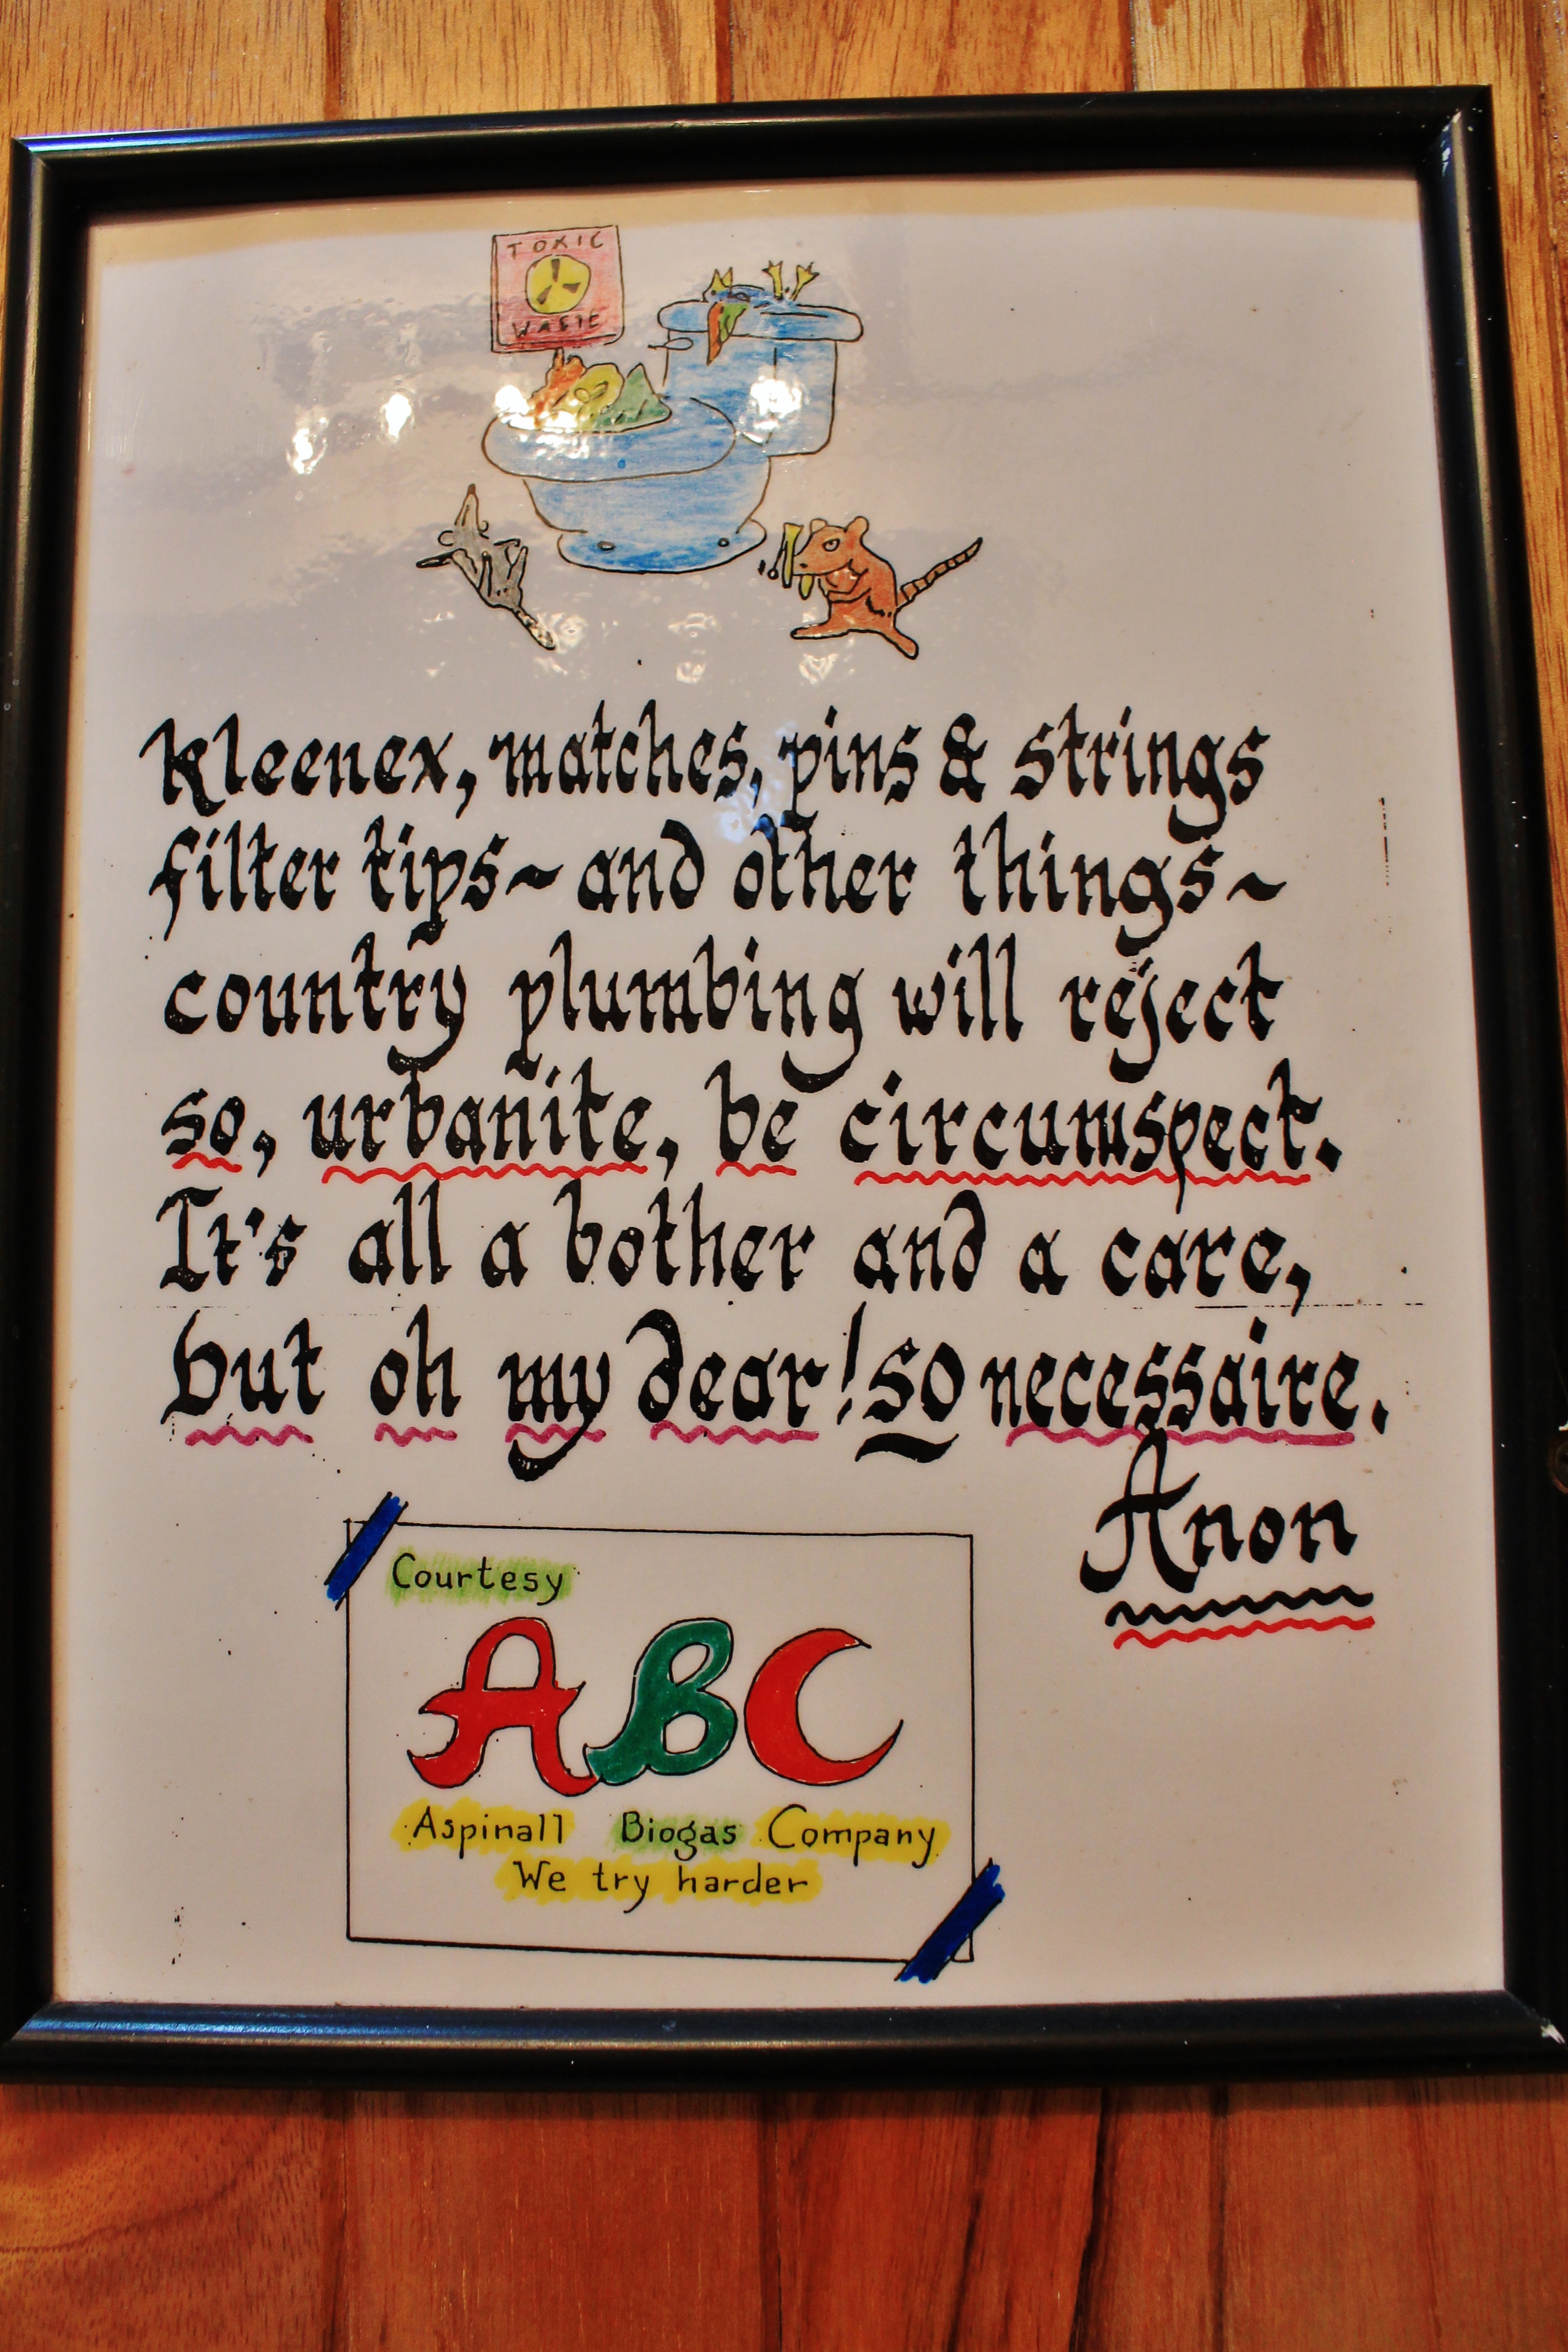 TOXIC
WASTE
Kleenex, matches, pins & strings
filter tips~ and other things~
country plumbing will reject
so, urbanite, be circumspect.
It's all a bother and a care,
but oh my dear! so necessaire.
Anon
Courtesy
ABC
Aspinall Biogas Company
We try harder